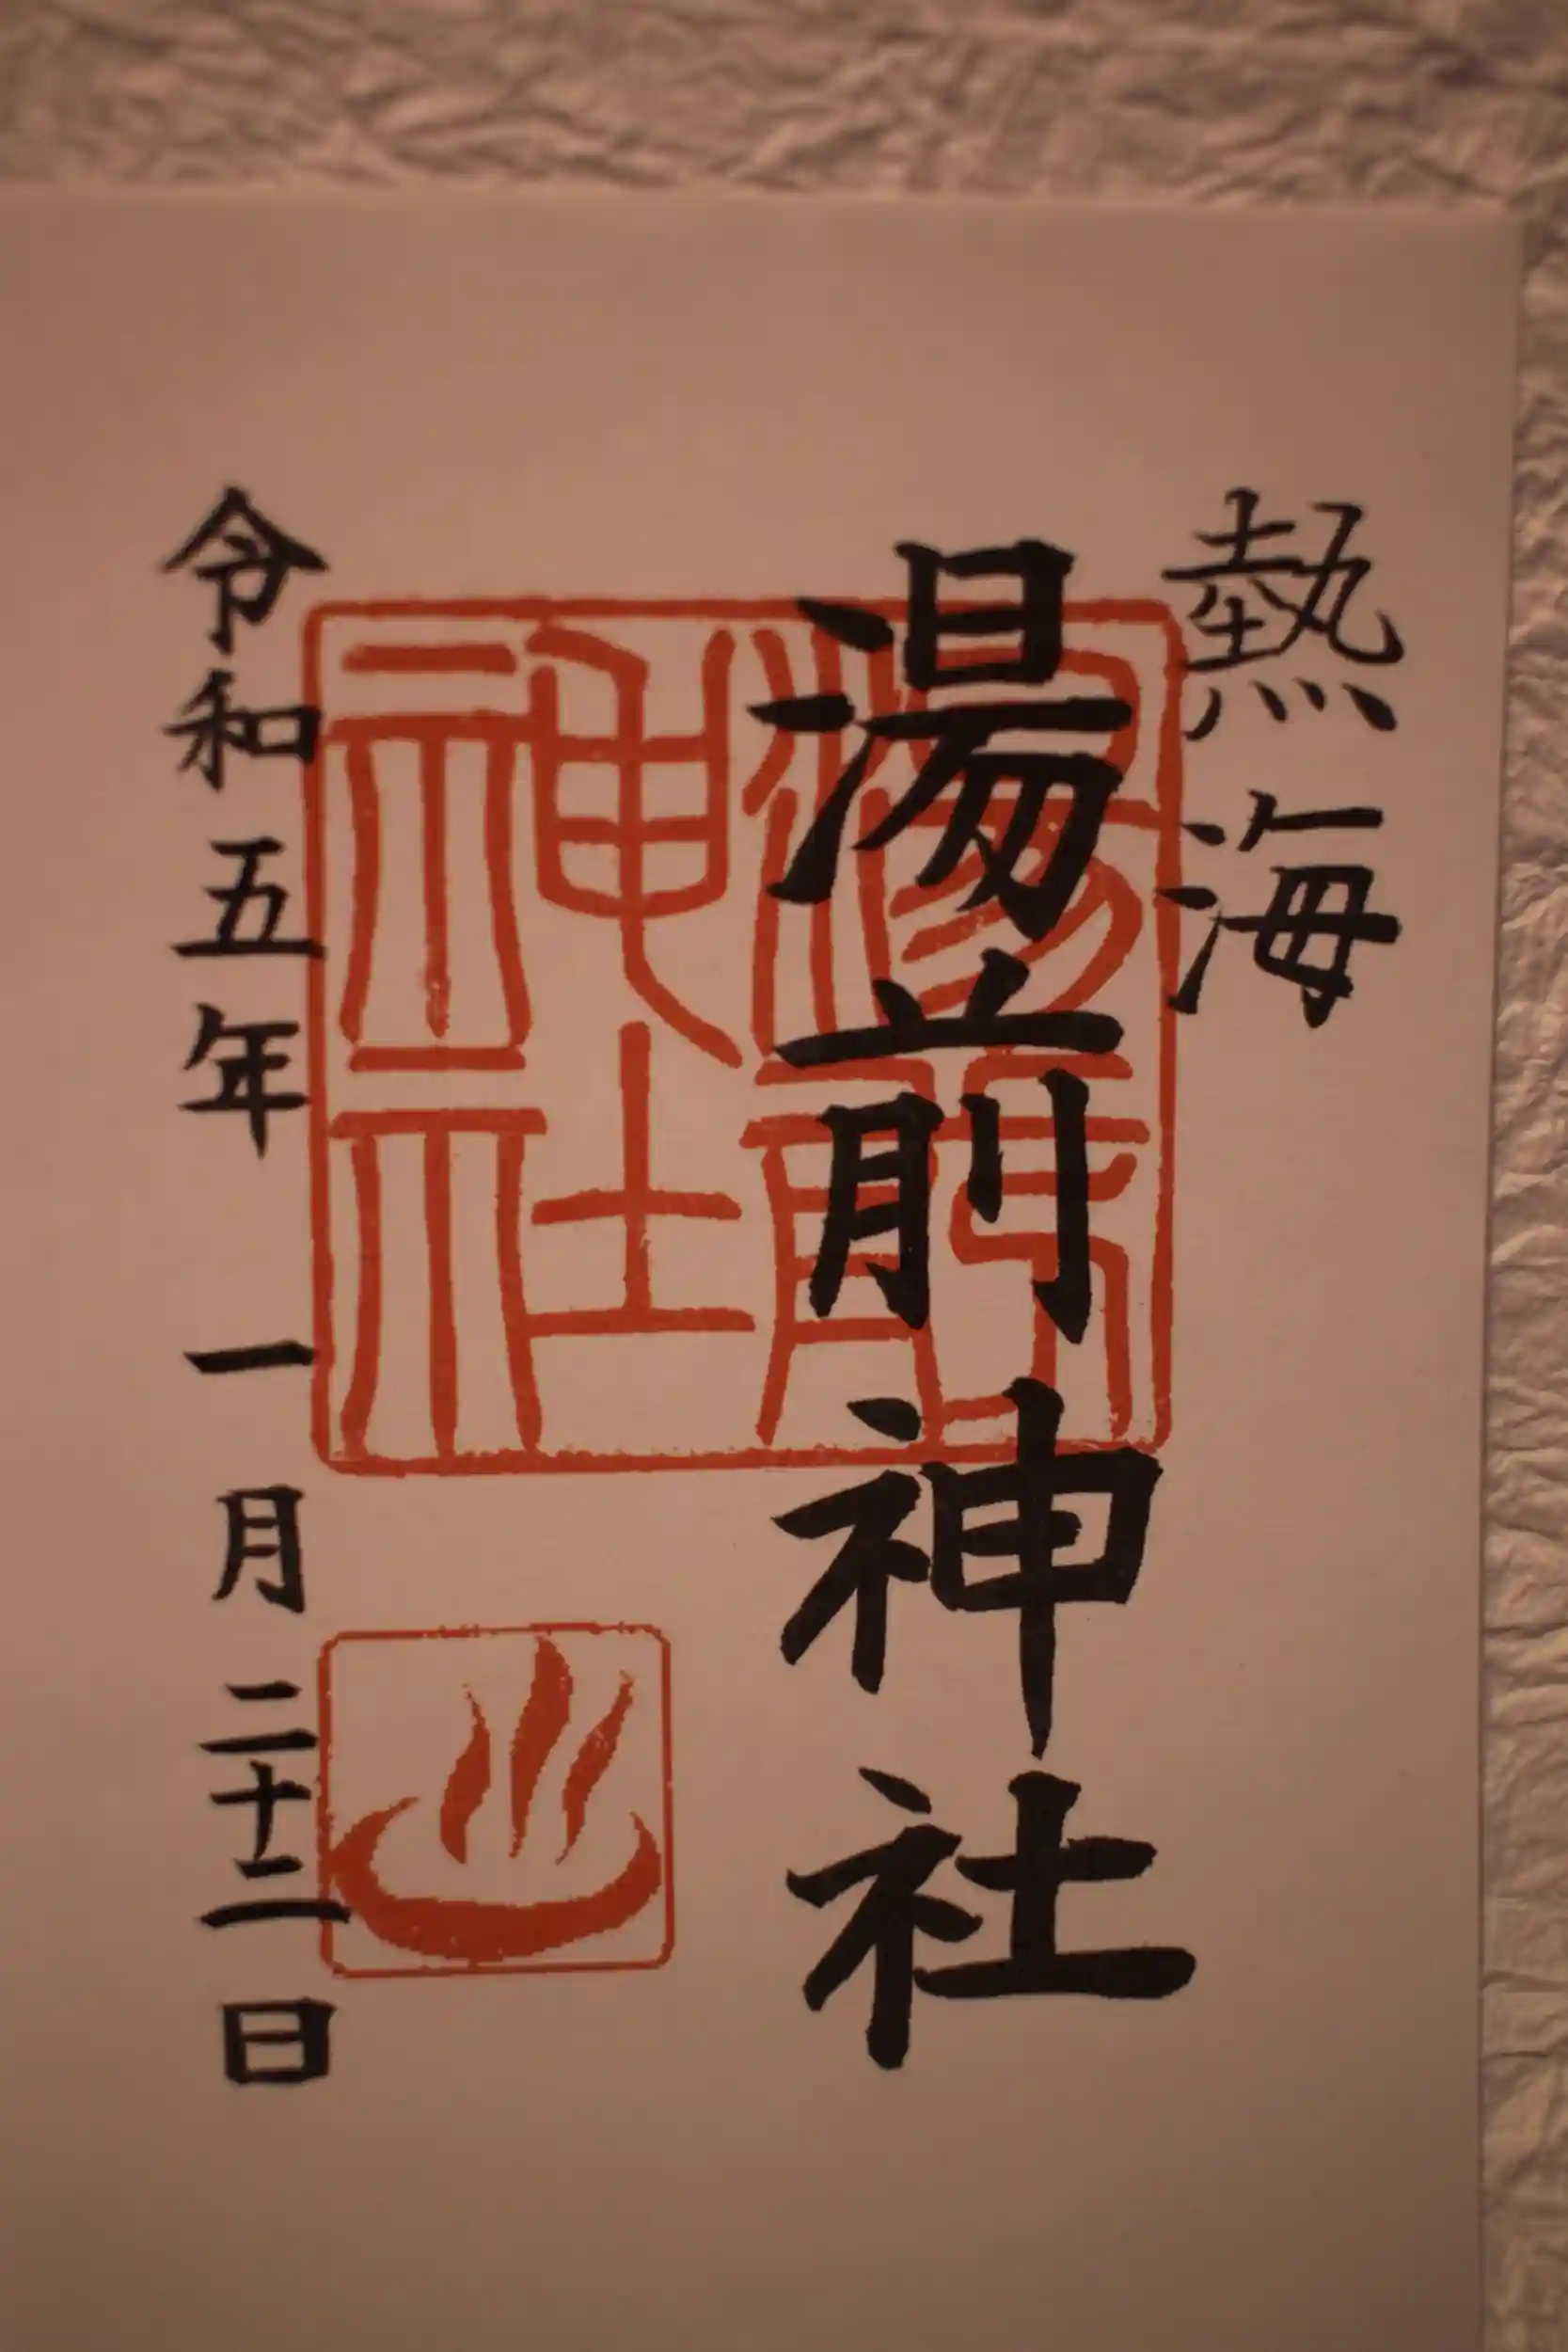 熱海
湯前神社
湯前神社
令和五年一月二十二日